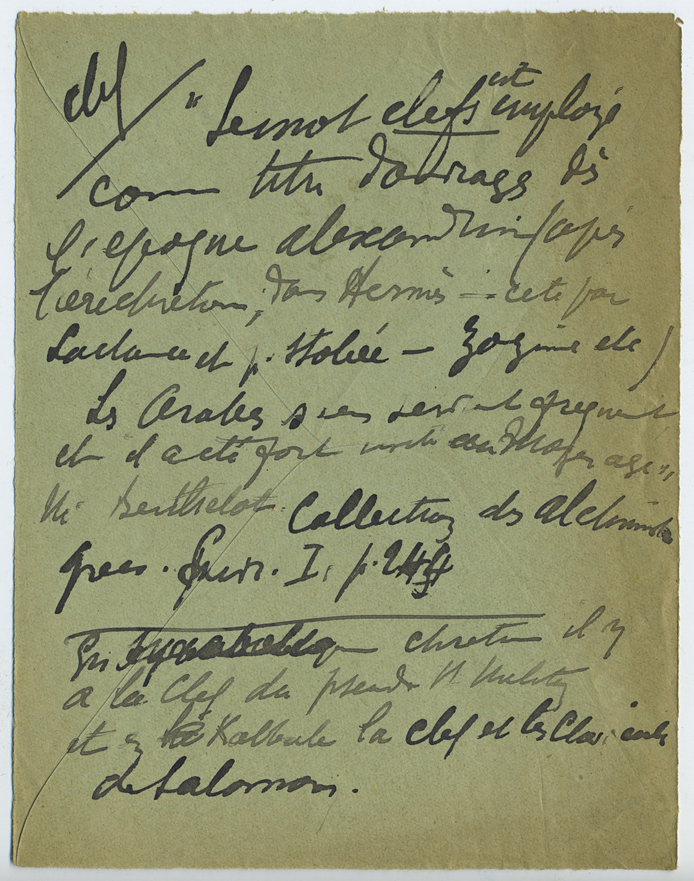 clef / "Le mot clefs est employé
comme titre d'ouvrages dès
l'époque alexandrine (après
l'ère chrétienne, dans Hermès — cité par
Lactance et p. Stobée — Zozime etc)
Les Arabes s'en servent fréquent
et il a été fort usité au Moyen age"
M. Berthelot Collection des alchimistes
grecs. I. p. 244
En symbolique chrétien il y
a la Clef du pseudo
et en Kabbale la clef et les Clavicules
de Salomon.